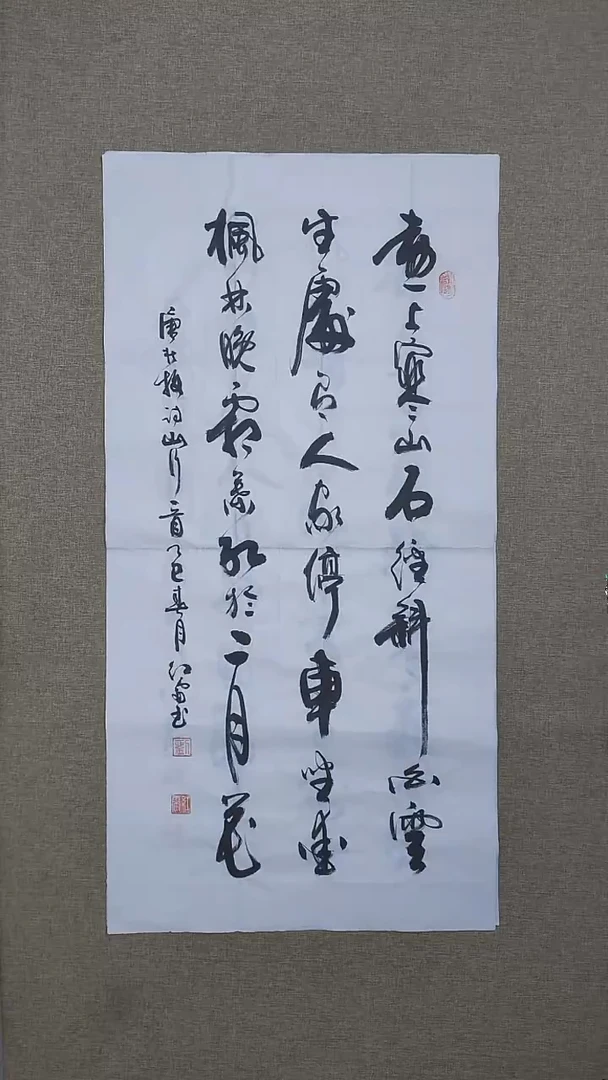 遠上寒山石徑斜白雲
生處有人家停車坐愛
楓林晚霜葉紅於二月花
唐杜牧詩山行一首乙巳春月红书